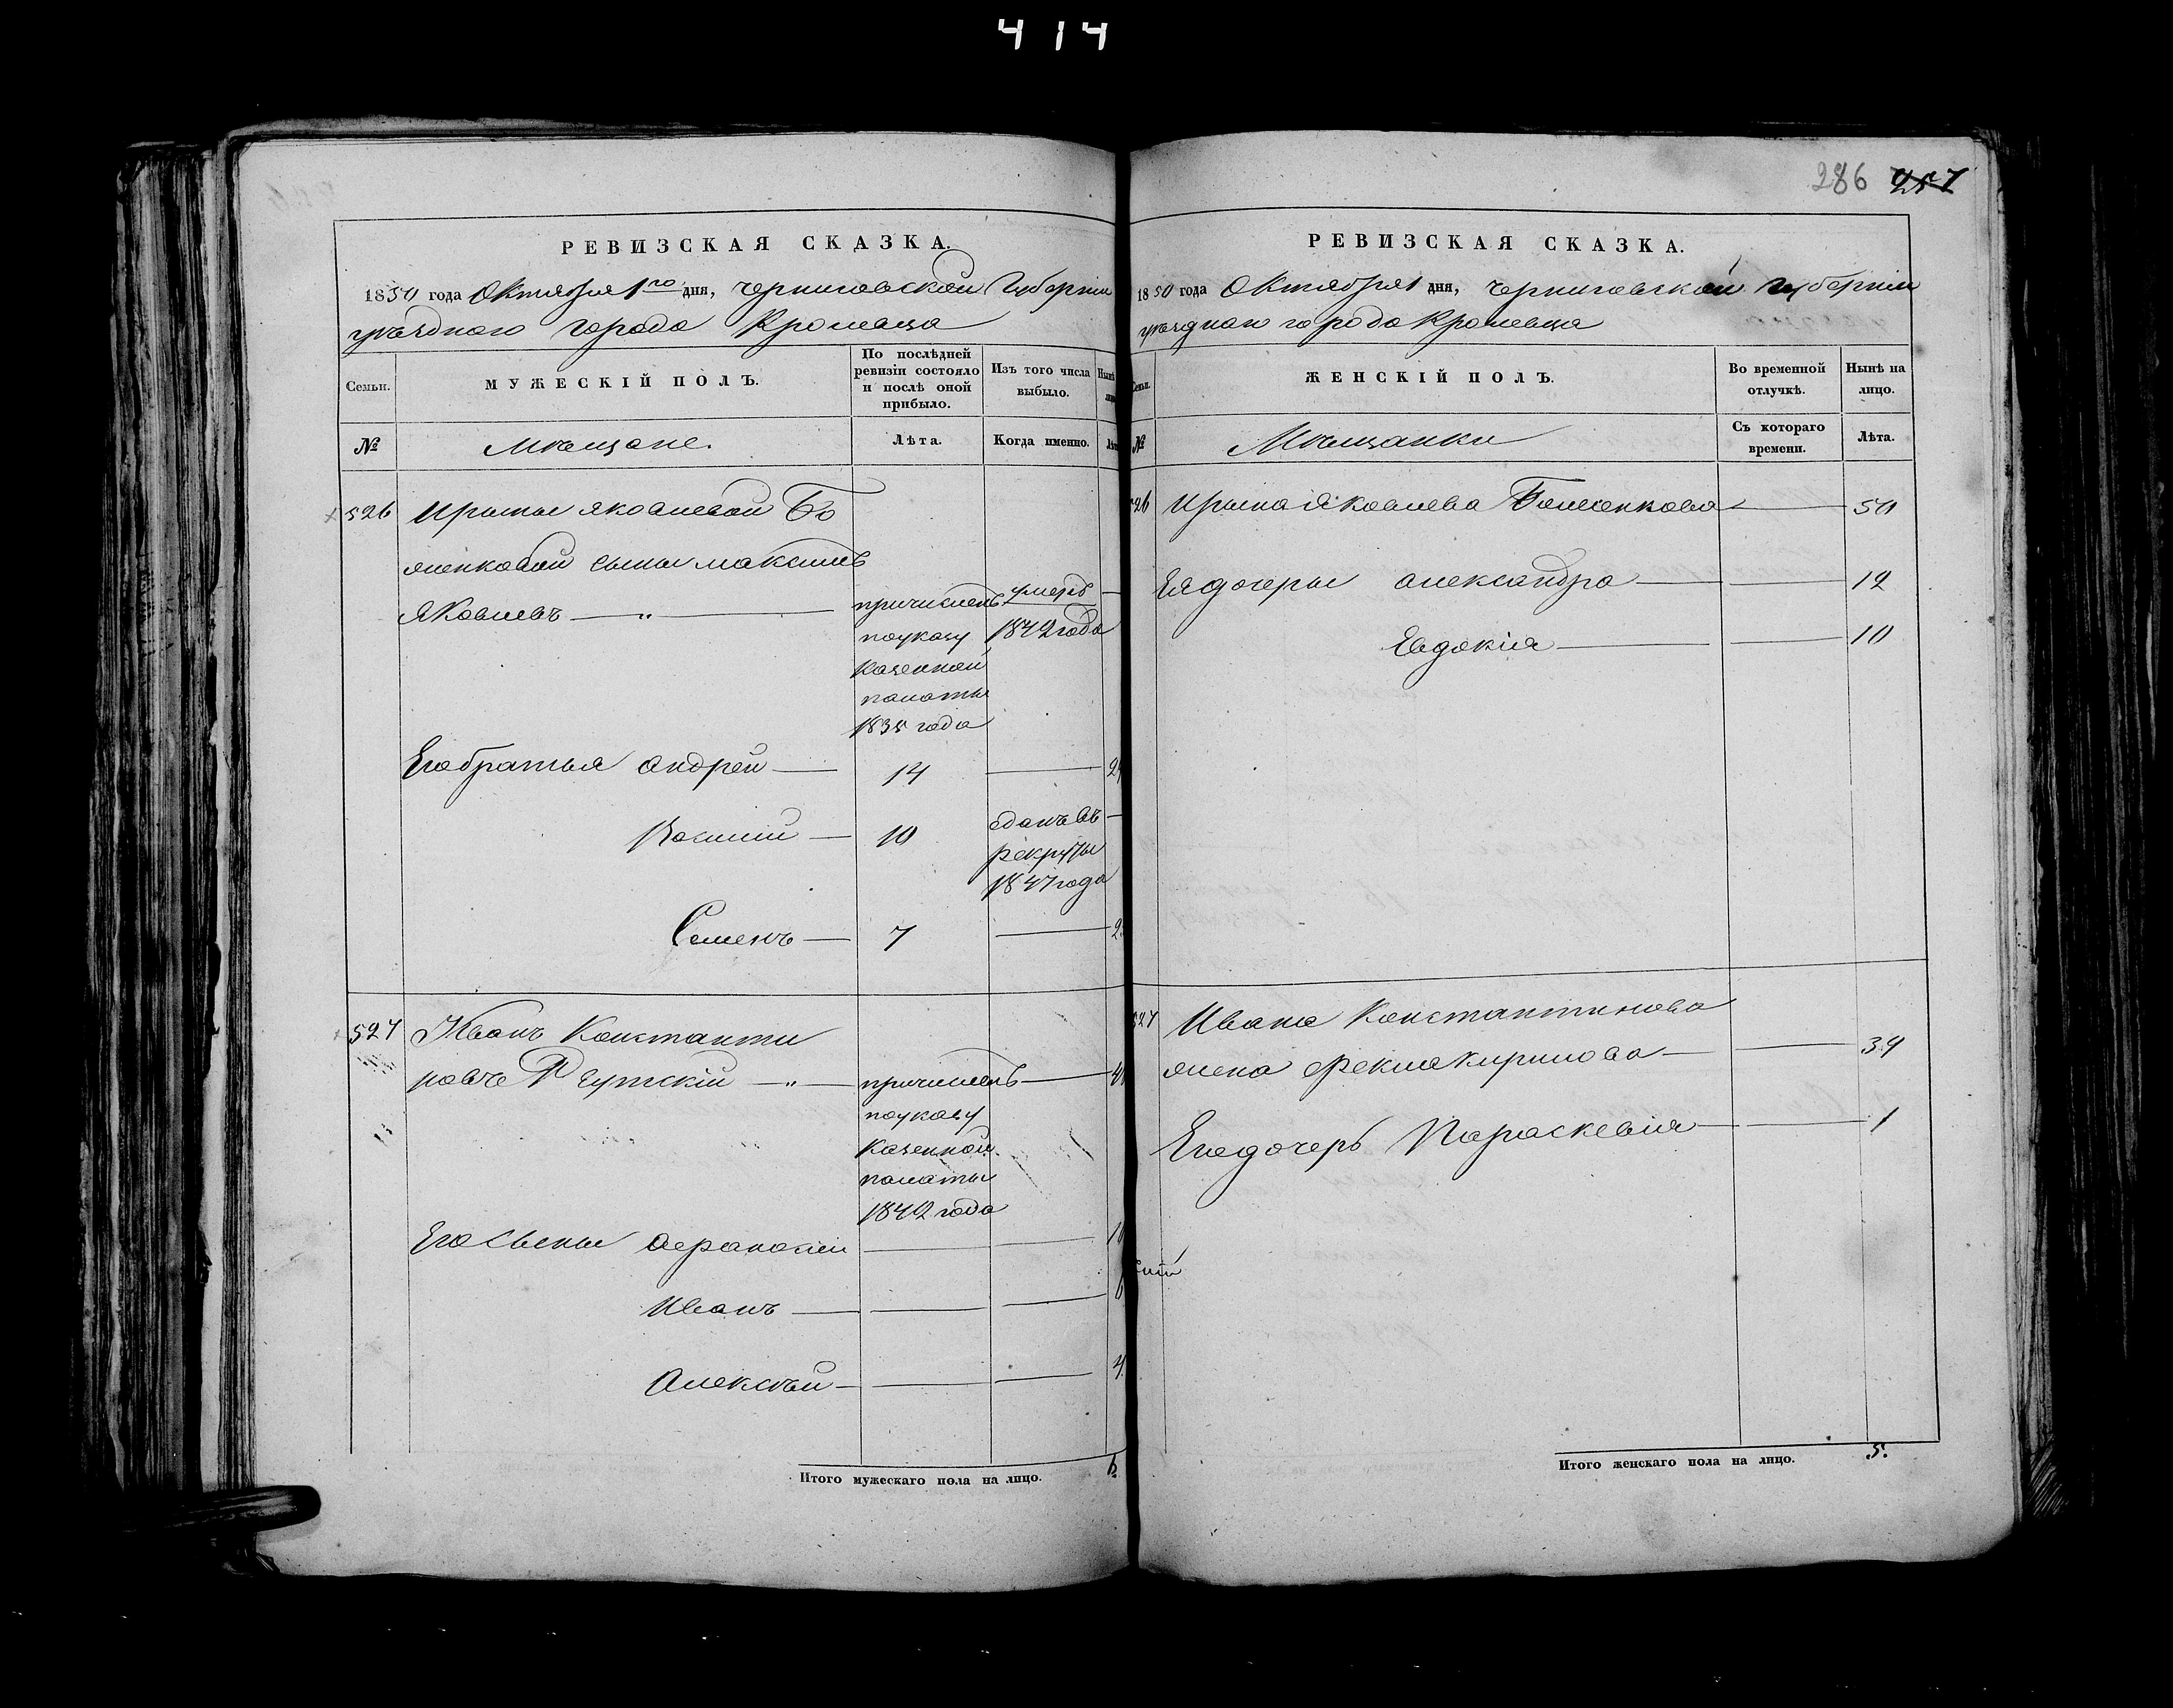 414
РЕВИЗСКАЯ СКАЗКА.
1850 года Октября 1го дня, Черниговской Губерніи
уѣзднаго города Кролевца
Семьи.
МУЖЕСКІЙ ПОЛЪ.
По послѣдней
ревизіи состояло
и послѣ оной
прибыло.
Изъ того числа
выбыло.
Нынѣ
№
Мѣщане.
Лѣта.
Когда именно.
526 Ирины Яковлевой Бо
женковой сыны Максимъ
Яковлевъ — „ —
причисленъ
поуказу
Казенной
палаты
1835 года
умеръ
1842 года
Егобратья Андрей — 14 —
Василій — 10
сданъ въ
рекруты
1847 года
Семенъ — 7 —
527 Иванъ Константи
новъ Реутскій — „ —
причисленъ —
поуказу
Казенной
палаты
1842 года
Его Сыны Афанасій — — 10
Иванъ — — — 6
Алексѣй — — — 4
Итого мужескаго пола на лицо. 6.
286 257
РЕВИЗСКАЯ СКАЗКА.
1850 года Октября 1 дня, Черниговской Губерніи
уѣзднаго города Кролевца
Семьи.
ЖЕНСКІЙ ПОЛЪ.
Во временной
отлучкѣ.
Нынѣ на
лицо.
№
Мѣщанки
Съ котораго
времени.
Лѣта.
526 Ирина Яковлева Боженкова — 50
Ея дочеры Александра — — 12
Евдокія — — 10
527 Ивана Константинова
жена Фекла Кирилова — — 39
Егодочерь Параскевія — — 1
Итого женскаго пола на лицо. 5.